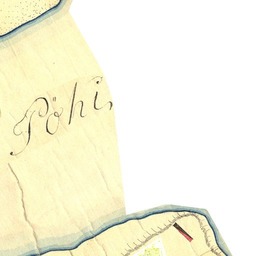 Pöhi,